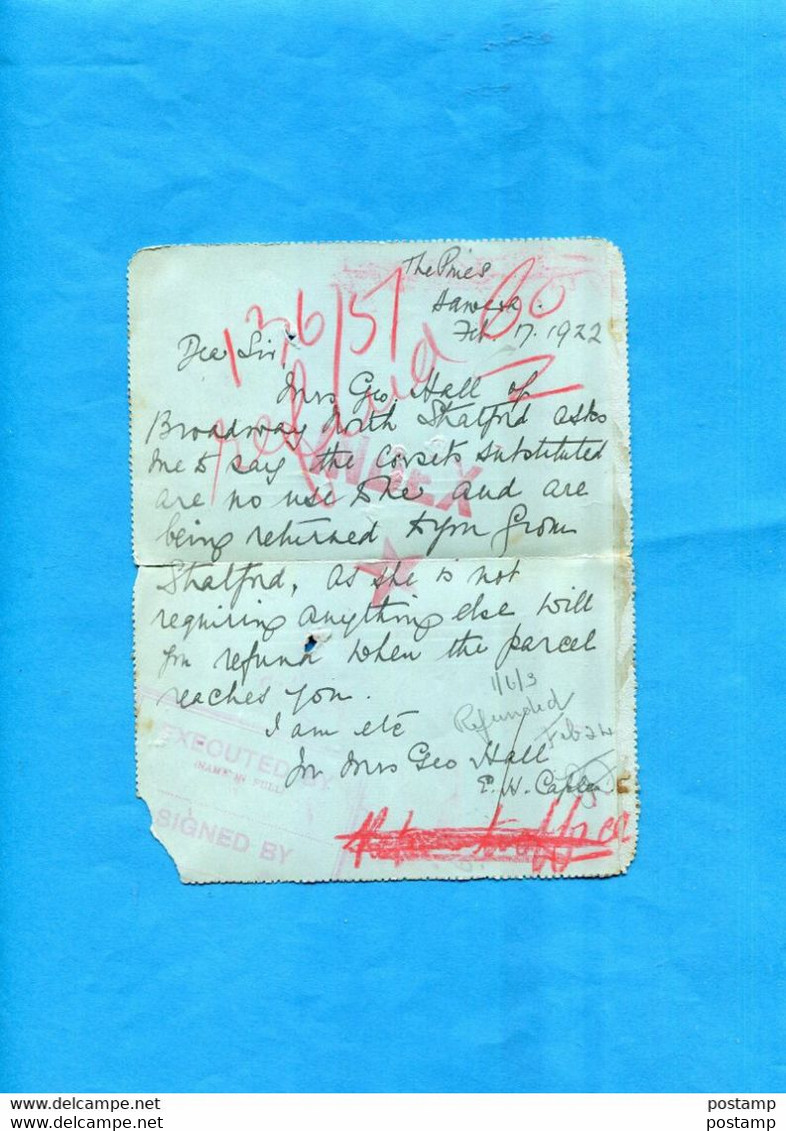 The Pines
Hawera.
Feb. 17. 1922
Dear Sir,
Mrs Geo. Hall of
Broadway North Stratford asks
me to say the corsets substituted
are no use to her and are
being returned to you from
Stratford, As she is not
requiring anything else will
you refund when the parcel
reaches you.
I am etc
for Mrs Geo Hall
E. W.
1/6/3
Refunded
Feb 24
refund
INDEX
EXECUTED BY
(NAME IN FULL)
SIGNED BY
delcampe.net
delcampe.net
postamp
postamp